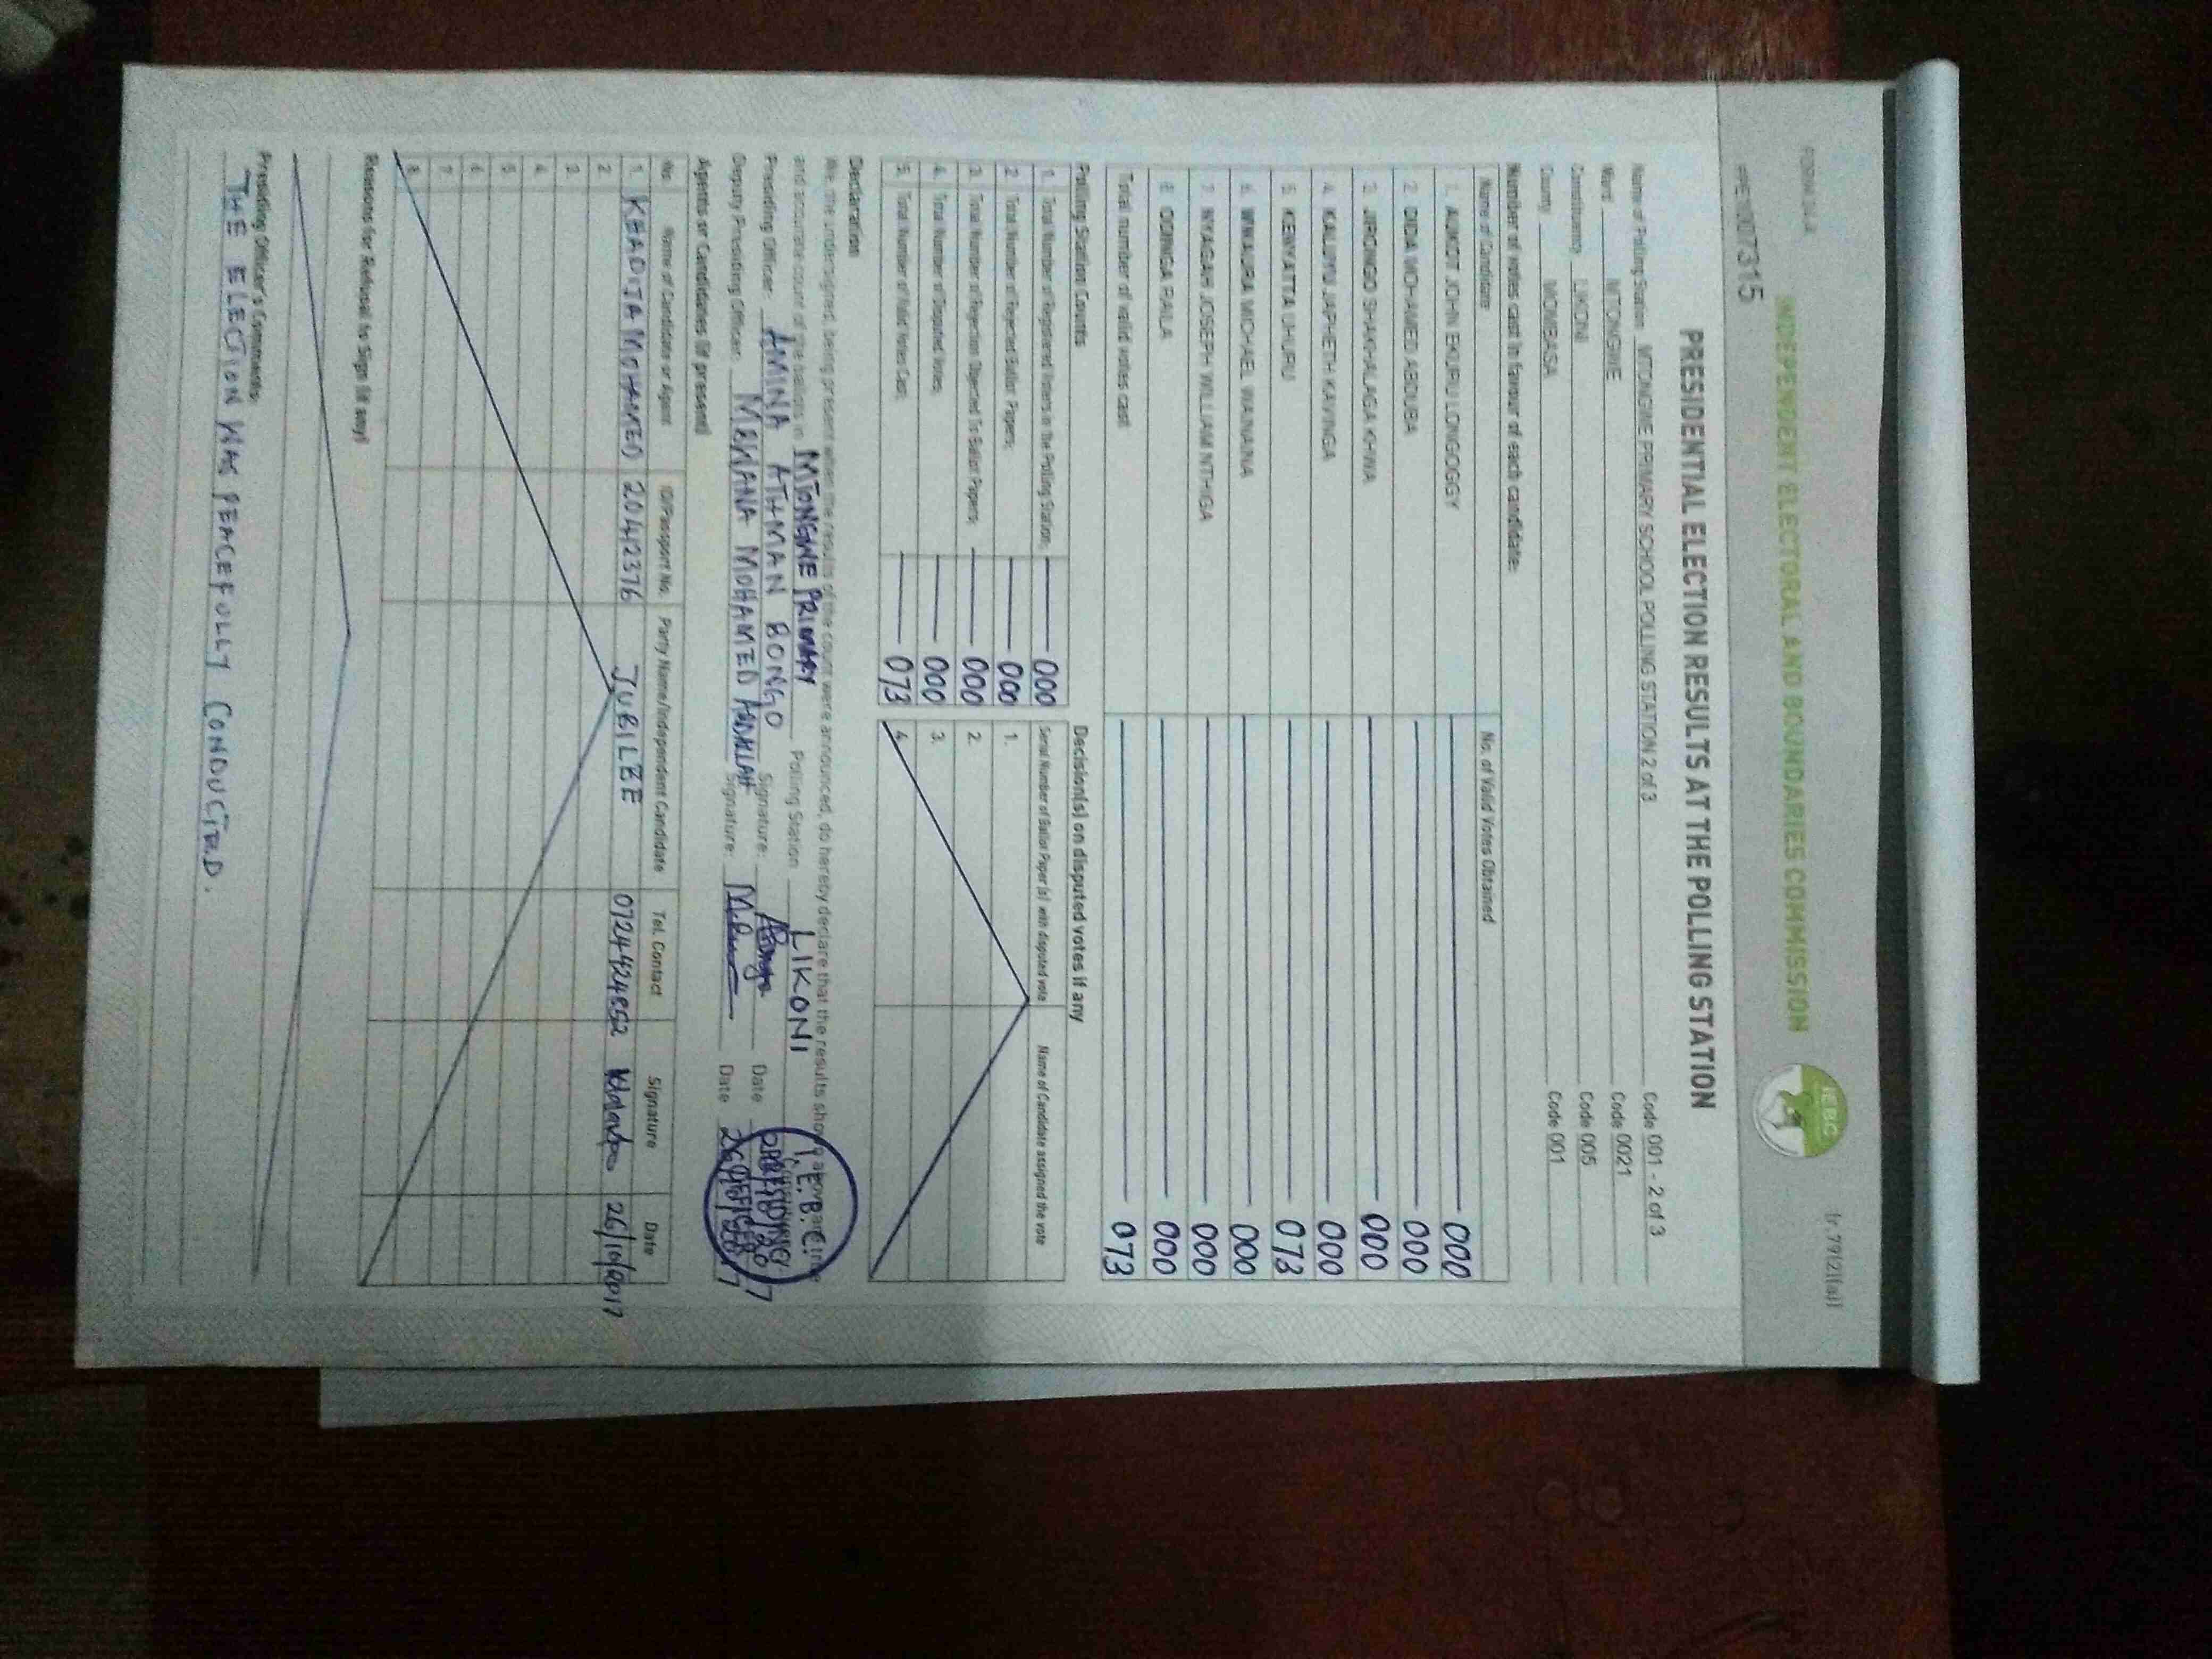 FORM 34A
(r.79(2)(a))
INDEPENDENT ELECTORAL AND BOUNDARIES COMMISSION
IEBC
007315
PRESIDENTIAL ELECTION RESULTS AT THE POLLING STATION
Name of Polling Station MTONGWE PRIMARY SCHOOL POLLING STATION 2 of 3 Code 001 - 2 of 3
Ward MTONGWE Code 0021
Constituency LIKONI Code 005
County MOMBASA Code 001
Number of votes cast in favour of each candidate:
Name of Candidate No. of Valid Votes Obtained
1. AUKOT JOHN EKURU LONGOGGY 000
2. DIDA MOHAMED ABDUBA 000
3. JIRONGO SHAKHALAGA KHWA 000
4. KALUYU JAPHETH KAVINGA 000
5. KENYATTA UHURU 073
6. MWAURA MICHAEL WAINAINA 000
7. NYAGAH JOSEPH WILLIAM NTHIGA 000
8. ODINGA RAILA 000
Total number of valid votes cast 073
Polling Station Counts
1. Total Number of Registered Voters in the Polling Station; 000
2. Total Number of Rejected Ballot Papers; 000
3. Total Number of Rejection Objected To Ballot Papers; 000
4. Total Number of Disputed Votes; 000
5. Total Number of Valid Votes Cast; 073
Decision(s) on disputed votes if any
Serial Number of Ballot Paper (s) with disputed vote Name of Candidate assigned the vote
1.
2.
3.
4.
Declaration
We, the undersigned, being present when the results of the count were announced, do hereby declare that the results shown above are true
and accurate count of the ballots in MTONGWE PRIMARY Polling Station LIKONI
Presiding Officer: AMINA ATHMAN BONGO Signature: Date
Deputy Presiding Officer: MBWANA MOHAMED ABDALLAH Signature: Date
I.E.B.C.
PRESIDING
OFFICER
Agents or Candidates (if present)
No. Name of Candidate or Agent ID/Passport No. Party Name/Independent Candidate Tel. Contact Signature Date
1. KHADIJA MOHAMED 20412376 JUBILEE 0724424852 26/10/2017
2
3.
4.
5
6
7
8.
Reasons for Refusal to Sign (if any)
Presiding Officer's Comments:
THE ELECTION WAS PEACEFULLY CONDUCTED.